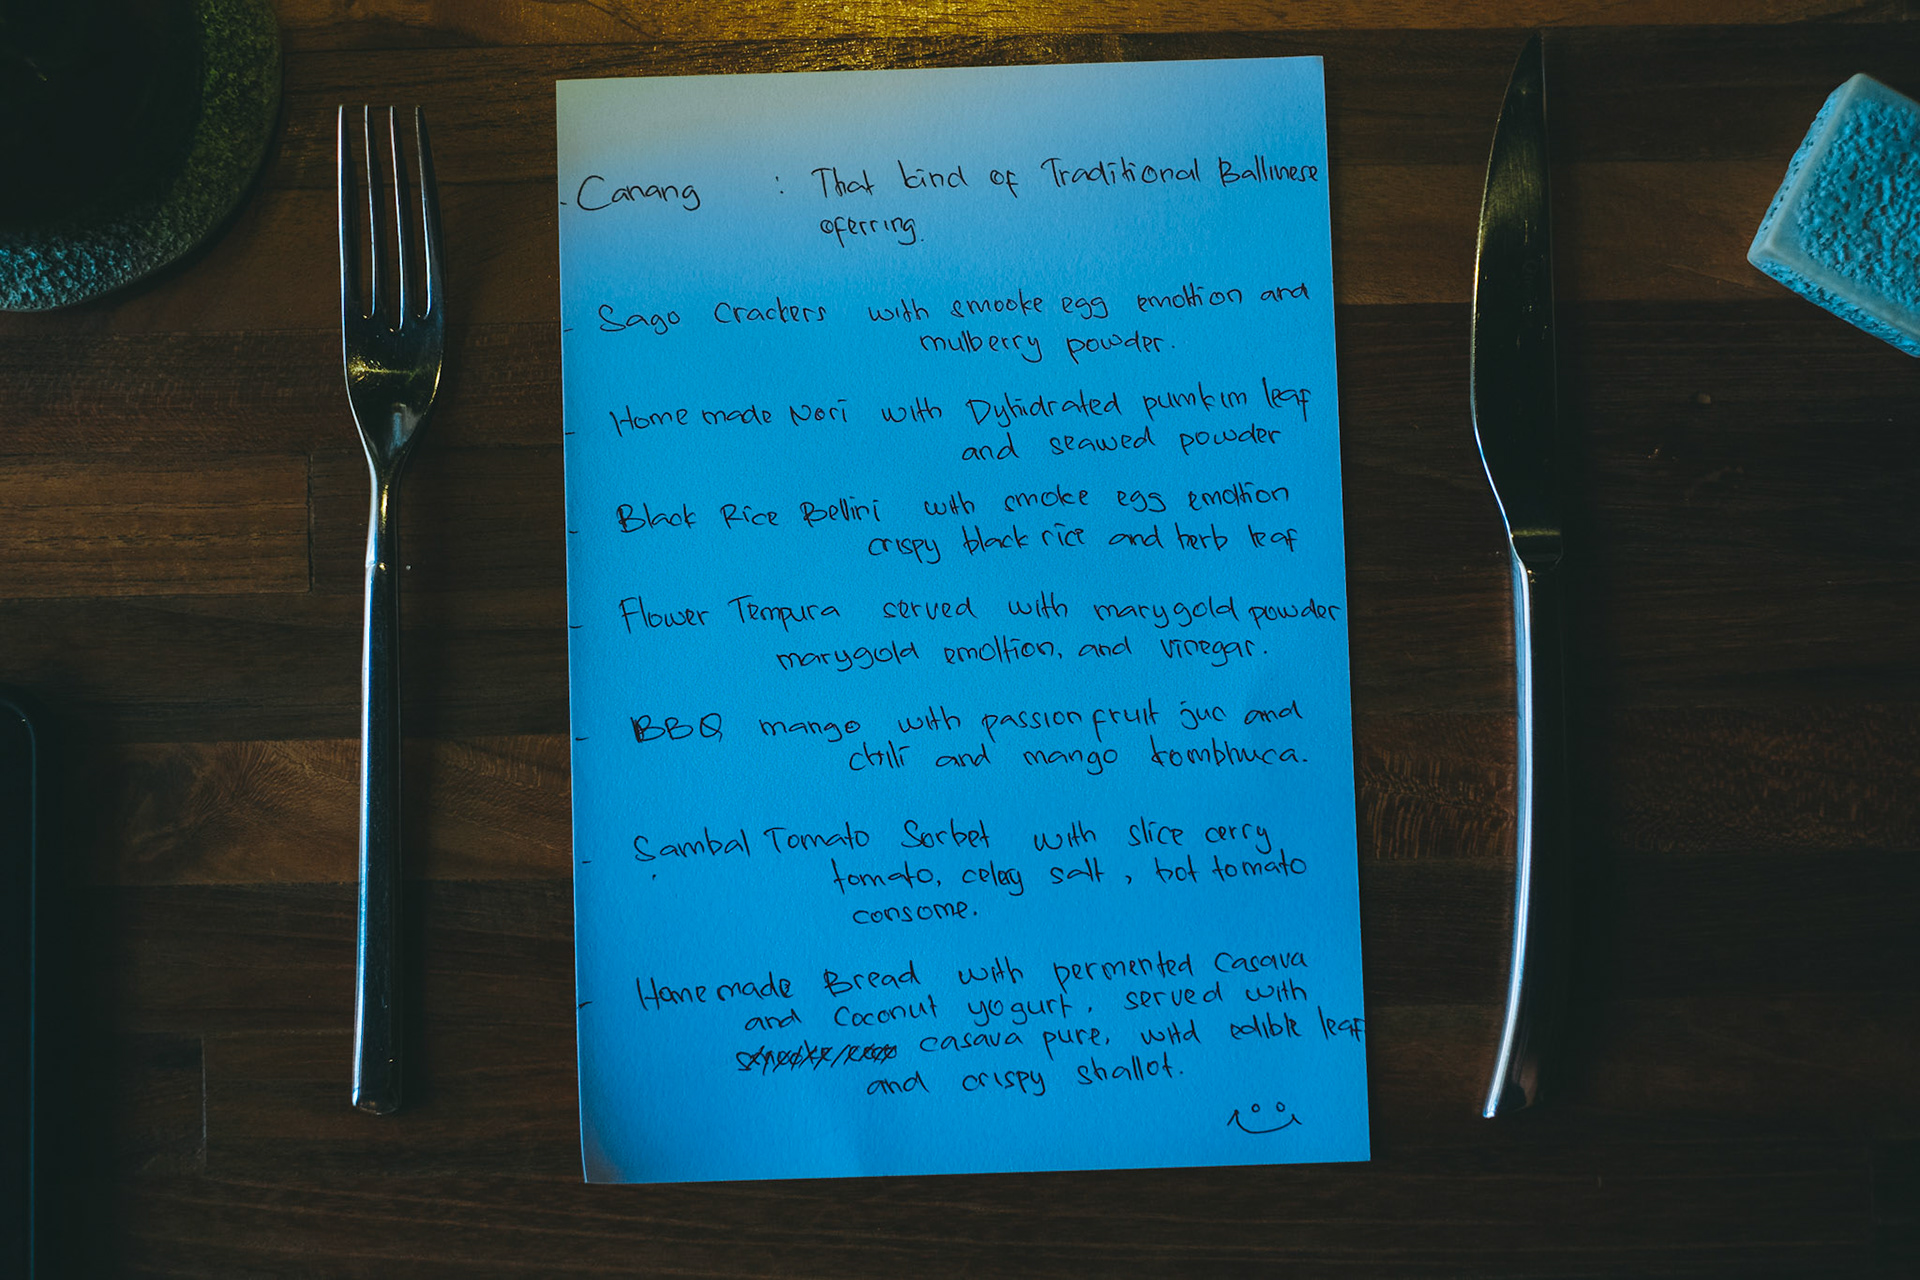 - Canang : That kind of Traditional Ballinese
oferring.
- Sago Crackers with smooke egg emoltion and
mulberry powder.
- Home made Nori with Dyhidrated pumkin leaf
and seawed powder
- Black Rice Bellini with smoke egg emoltion
crispy black rice and herb leaf
- Flower Tempura served with marygold powder
marygold emoltion, and vinegar.
- BBQ mango with passion fruit juc and
chili and mango kombhuca.
- Sambal Tomato Sorbet with slice cerry
tomato, celery salt, hot tomato
consome.
- Home made Bread with permented casava
and Coconut yogurt, served with
casava pure, wild edible leaf
and crispy shallot.